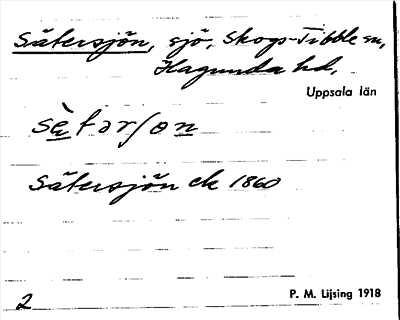 Sätersjön, sjö, Skogs-Tibble sn,
Hagunda hd,
Uppsala län
Sätersjön ek 1860
2
P. M. Lijsing 1918